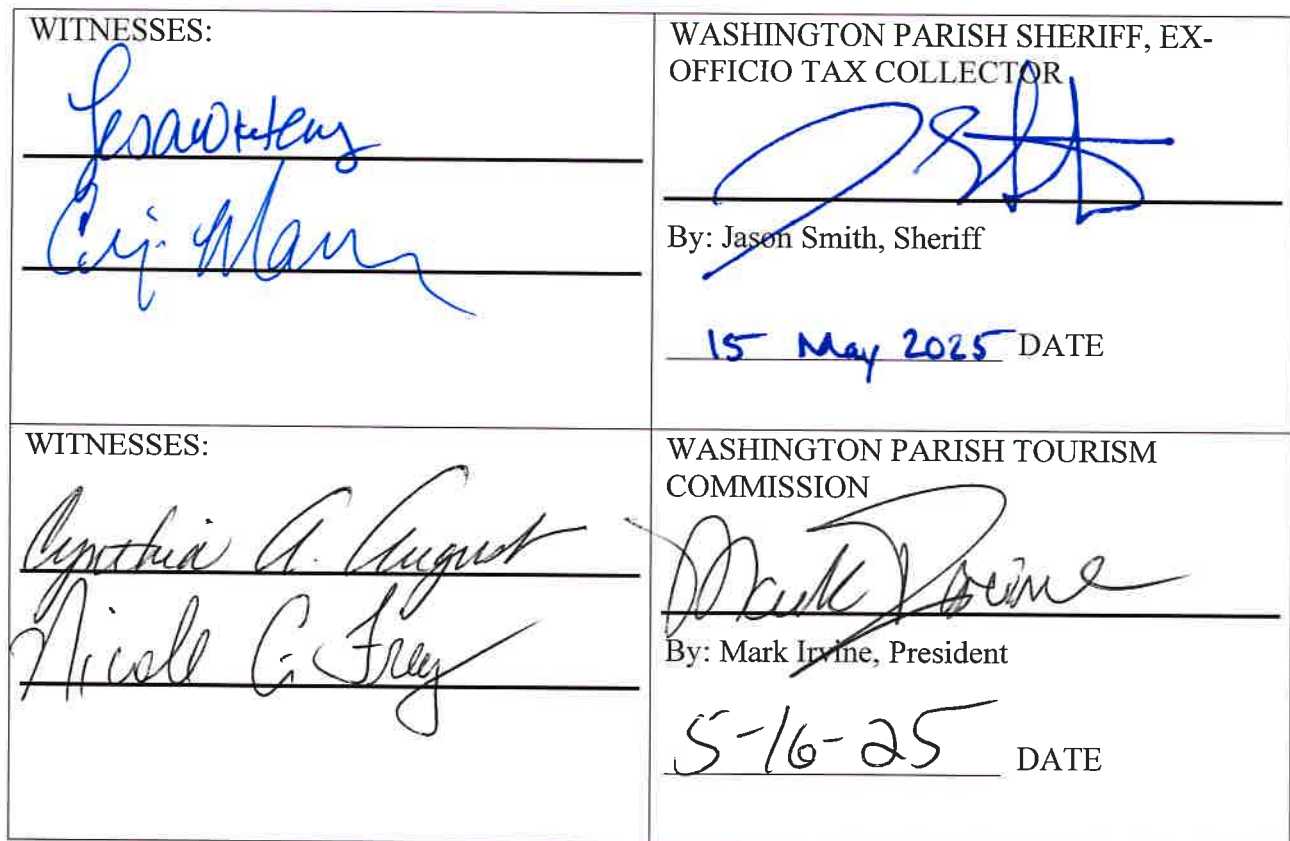 WITNESSES:
WASHINGTON PARISH SHERIFF, EX-
OFFICIO TAX COLLECTOR
By: Jason Smith, Sheriff
15 May 2025 DATE
WITNESSES:
Cynthia A. August
Nicole C. Frey
WASHINGTON PARISH TOURISM
COMMISSION
Mark Irvine
By: Mark Irvine, President
5-16-25 DATE